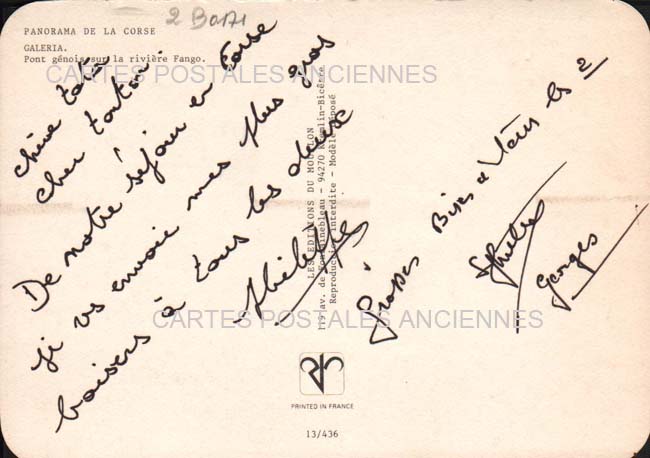 PANORAMA DE LA CORSE
GALERIA.
Pont génois sur la rivière Fango.
CARTES POSTALES ANCIENNES
chère tata
cher tonton.
De notre séjour en Corse
je vs envoie mes plus gros
baisers à tous les deux
LES EDITIONS DU MOUFLON
119 av. de Fontainebleau - 94270 Kremlin-Bicêtre
Reproduction interdite - Modèle déposé
Grosses Bises à vous les 2
Georges
CARTES POSTALES ANCIENNES
PRINTED IN FRANCE
13/436